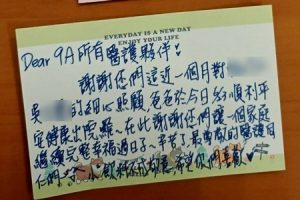 EVERYDAY IS A NEW DAY
ENJOY YOUR LIFE
Dear 9A所有醫護夥伴:
謝謝你們這近一個月對
吳 的細心照顧,爸爸於今日終順利平
安健康出院囉~在此謝謝你們讓一個家庭
繼續完整幸福過日子~辛苦了最
小飲料不成敬意,希望你們喜歡